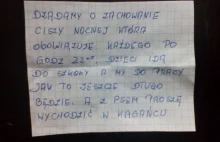 DZĄDAMY O ZACHOWANIE
CISZY NOCNEJ KTÓRA
OBOWIĄZUJE KAŻDEGO PO
GODZ 22⁰⁰. DZIECI IDĄ
DO SZKOŁY A MI DO PRACY
JAK TO JESZCZE DŁUGO
BĘDZIE. A Z PSEM PROSZĘ
WYCHODZIĆ W KAGAŃCU